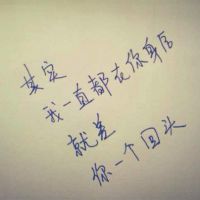 其实
我一直都在你身后
就差
你一个回头